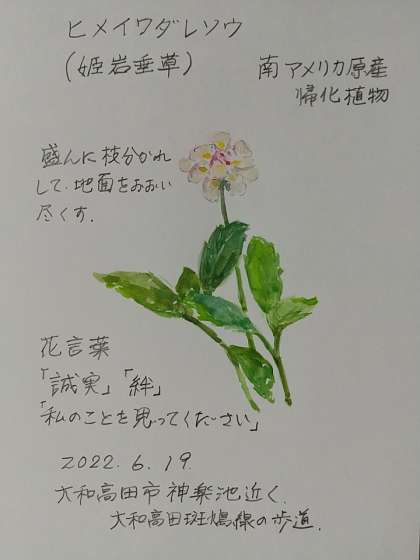 ヒメイワダレソウ
(姫岩垂草)
南アメリカ原産
帰化植物
盛んに枝分かれ
して、地面をおおい
尽くす.
花言葉
「誠実」「絆」
「私のことを思ってください」
2022.6.19.
大和高田市 神楽池近く.
大和高田斑鳩線の歩道.